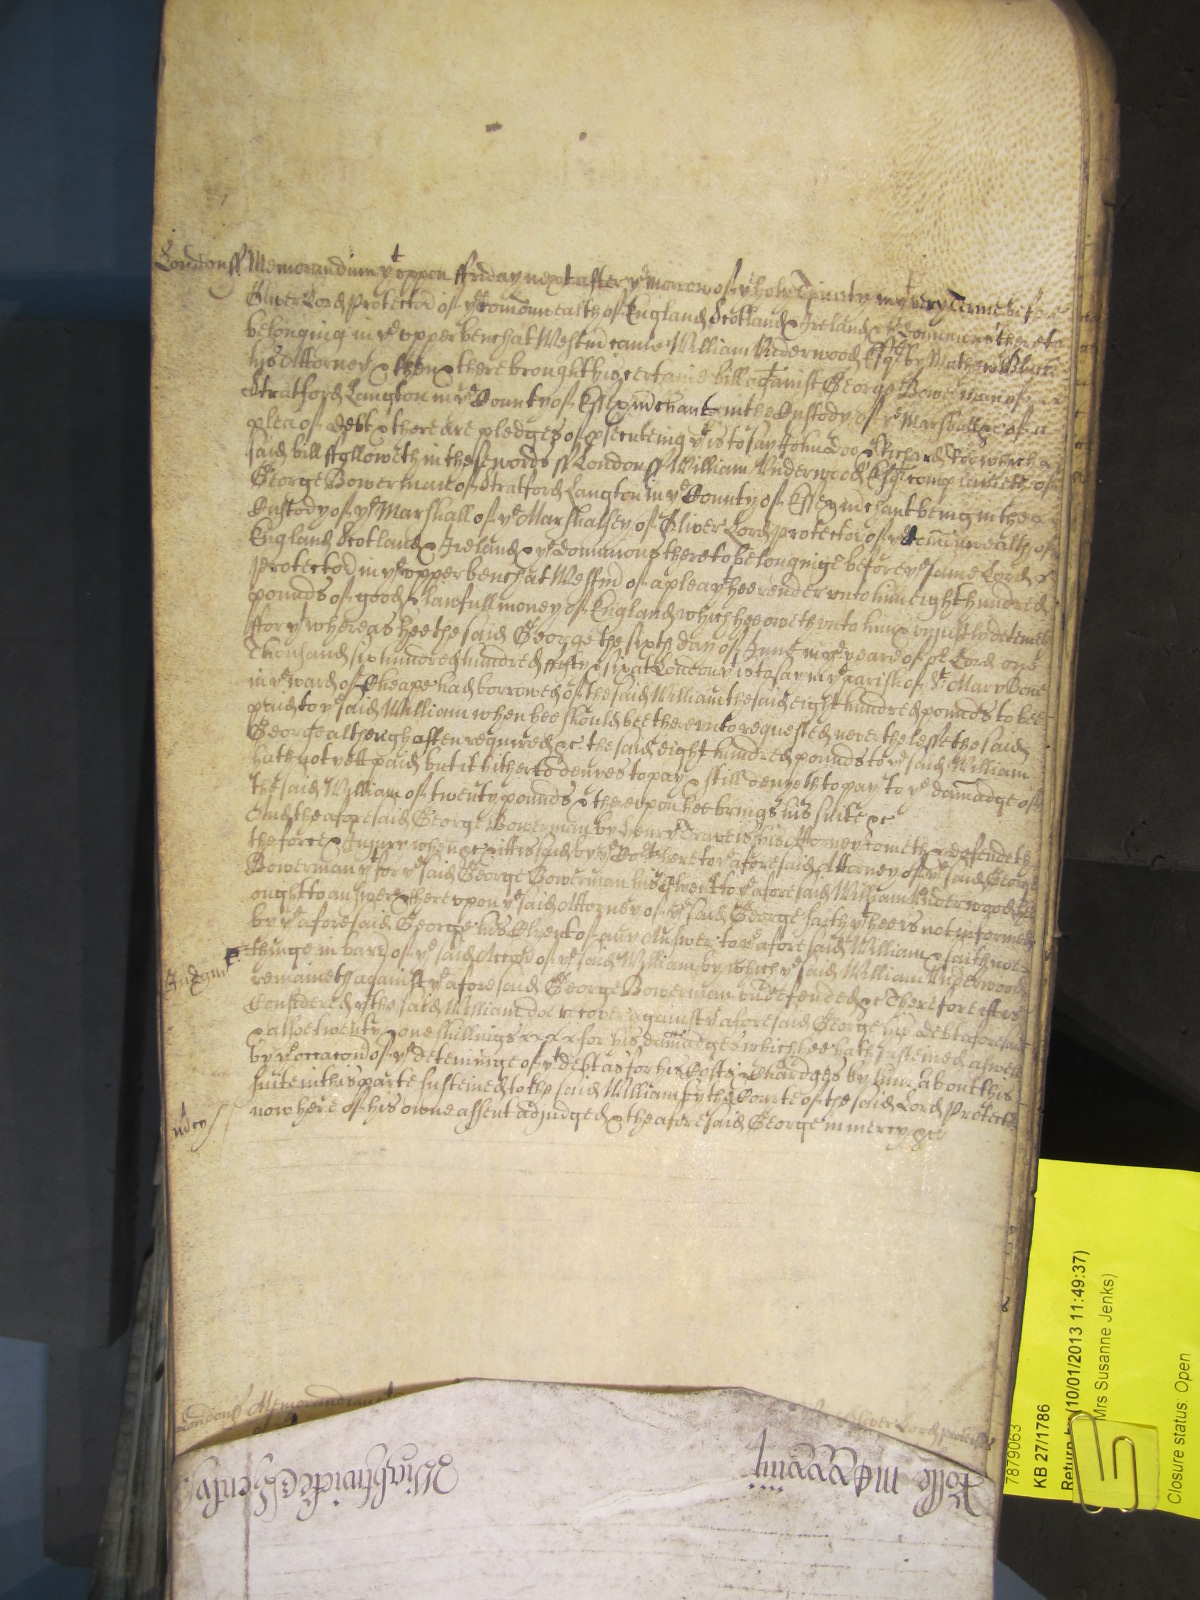 London ss Memorandum yt uppon ffriday next after ye morrow of ye holy Trinity in ys very Terme before
Oliver Lord Protector of ye Comonwealth of England Scotland & Ireland & ye Dominions thereto
belonging in ye upper bench at Westm came William Underwood Esqr by Mathew
his Attorney & then & there brought his certaine bill against George Bowerman of
Stratford Langton in ye County of Essex mchant in the Custody of ye Marshall &c of a
plea of debt & there are pledges of psecuteing yt is to say John Doo & Richard Roo which
said bill ffolloweth in these words ss London ss William Underwood Esqr complaineth of
George Bowerman of Stratford Langton in ye County of Essex mchant being in the
Custody of ye Marshall of ye Marshalsey of Oliver Lord Protector of ye Comonwealth of
England Scotland & Ireland & ye dominions thereto belonginge before ye same Lord
Protector in ye upper bench at Westmr of a plea yt hee render unto him eight hundred
pounds of good & lawfull money of England which hee oweth unto him & unjustly deteineth
ffor yt whereas hee the said George the sixth day of June in ye yeare of or Lord one
Thousand six hundred hundred ffifty & six at London yt is to say in ye parish of St Mary Bowe
in ye ward of Cheape had borrowed of the said William the said eight hundred pounds to bee
paid to ye said William when hee should bee thereunto requested neverthelesse the said
George although often required &c the said eight hundred pounds to ye said William
hath not yett paid but it hitherto denyes to pay & still denyeth to pay to ye damadge of
the said William of twenty pounds & thereupon hee brings his suite &c
And the aforesaid George Bowerman by Henry Travers his Attorney cometh & defendeth
the force & Injury when &c & itt is said by ye Cort here to ye aforesaid Attorney of ye said George
Bowerman yt for ye said George Bowerman his Clyent to ye aforesaid William Underwood hee
ought to answer & thereupon ye said Attorney of ye said George saith yt hee is not informed
by ye aforesaid George his Clyent of any Answer to ye aforesaid William & saith not
Judgmt thinge in barr of ye said Acc̄on of ye said William by which ye said William Underwood
remaineth against ye aforesaid George Bowerman undefended &c Therefore itt is
Considered yt the said William doe recover against ye aforesaid George his debt aforesaid
& alsoe twenty & one shillings for his damadges which hee hath susteined aswell
by ye occacon of ye deteninge of yt debt as for his Costs & Chardges by him about his
suite in this parte susteined to the said William by the Courte of the said Lord Protector
mercy now here of his owne assent adjudged & the aforesaid George in mercy &c
London ss Memorandum Oliver Lord Protector
Wightwicke & Henly
Rolle
7879063
KB 27/1786
Return by (10/01/2013 11:49:37)
Mrs Susanne Jenks)
Closure status: Open